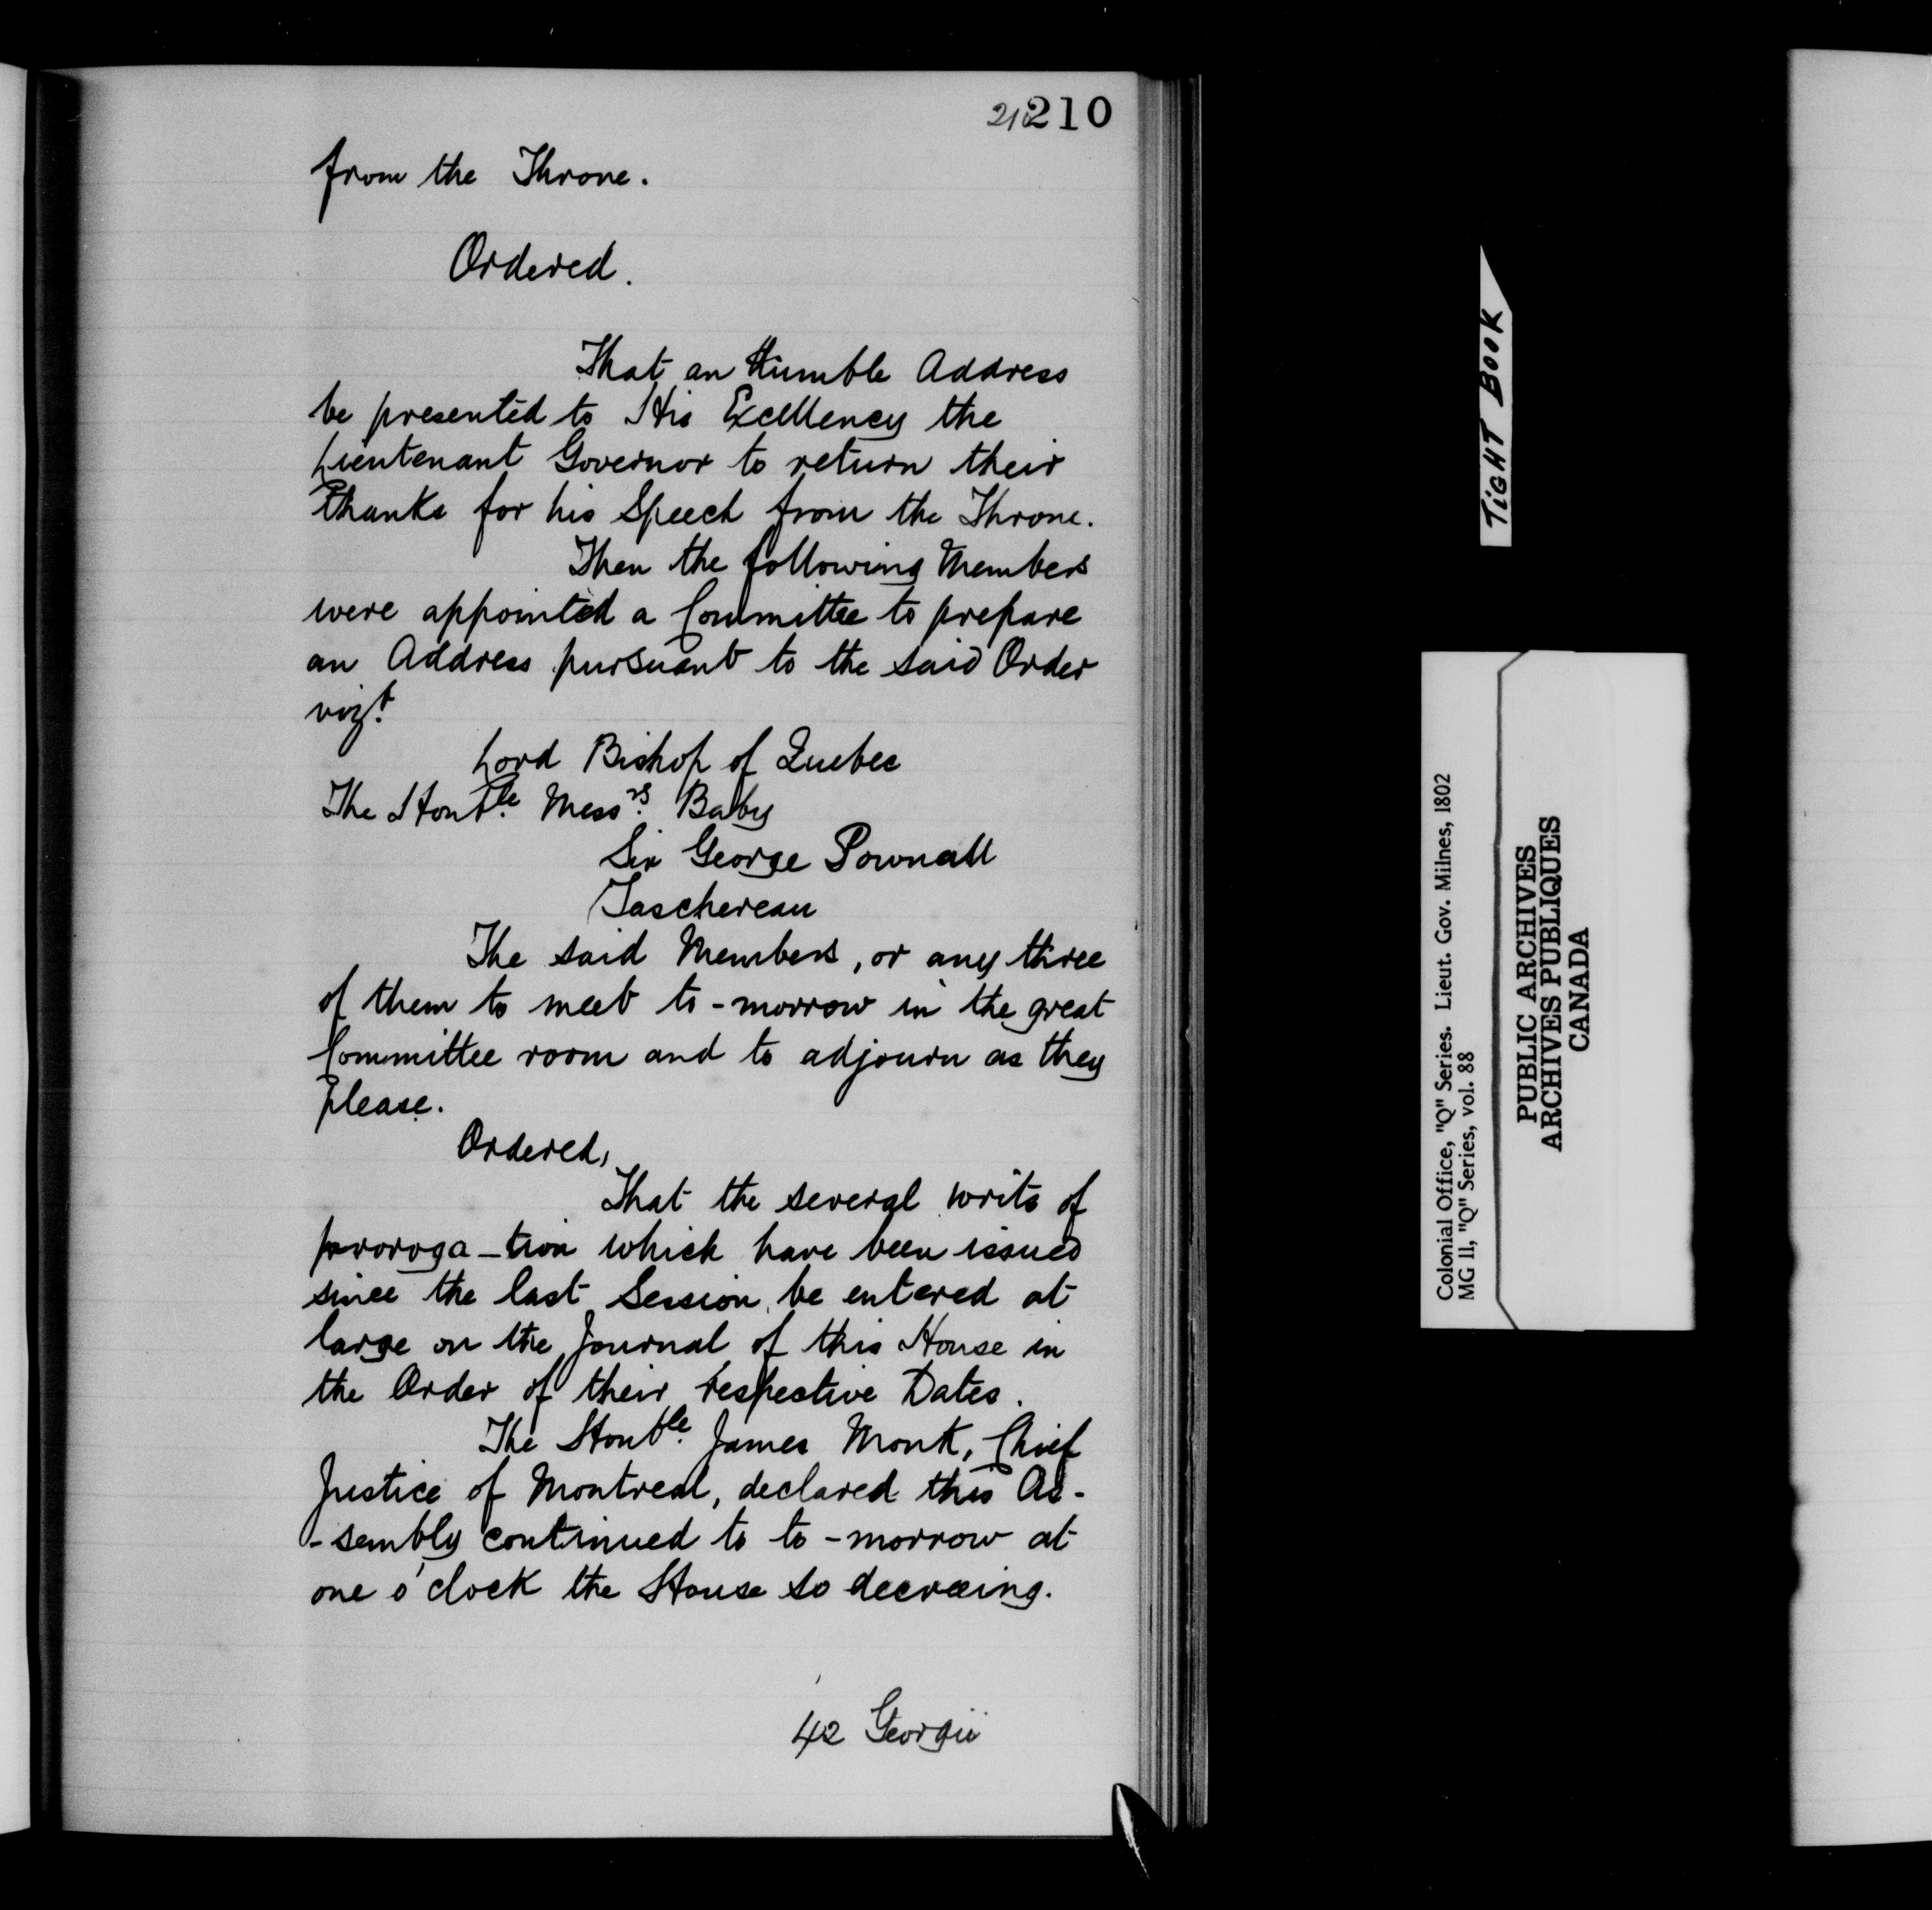 210
from the Throne.
Ordered.
That an Humble Address
be presented to His Excellency the
Lieutenant Governor to return their
Thanks for his Speech from the Throne.
Then the following Members
were appointed a Committee to prepare
an Address pursuant to the said Order
vizt.
Lord Bishop of Quebec
The Honble. Messrs. Baby
Sir George Pownall
Taschereau
The said Members, or any three
of them to meet to-morrow in the great
Committee room and to adjourn as they
please.
Ordered,
That the several writs of
proroga-tion which have been issued
since the last Session, be entered at
large on the Journal of this House in
the Order of their respective Dates.
The Honble. James Monk, Chief
Justice of Montreal, declared this As-
-sembly continued to to-morrow at
one o'clock the House so decreeing.
42 Georgii
TIGHT BOOK
Colonial Office, "Q" Series. Lieut. Gov. Milnes, 1802
MG 11, "Q" Series, vol. 88
PUBLIC ARCHIVES
ARCHIVES PUBLIQUES
CANADA